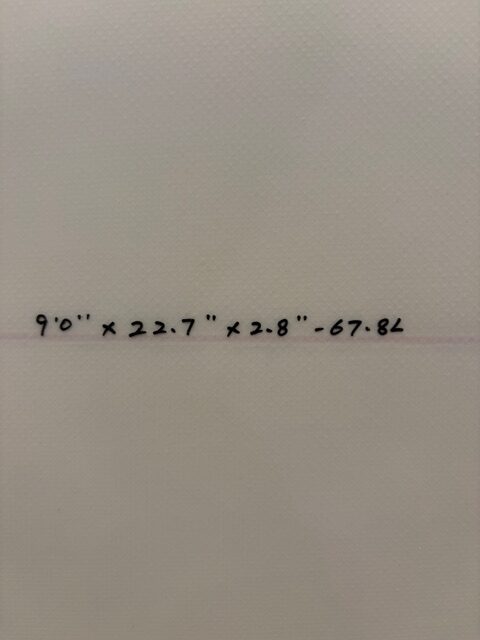 9'0'' x 22.7" x 2.8" - 67.8L